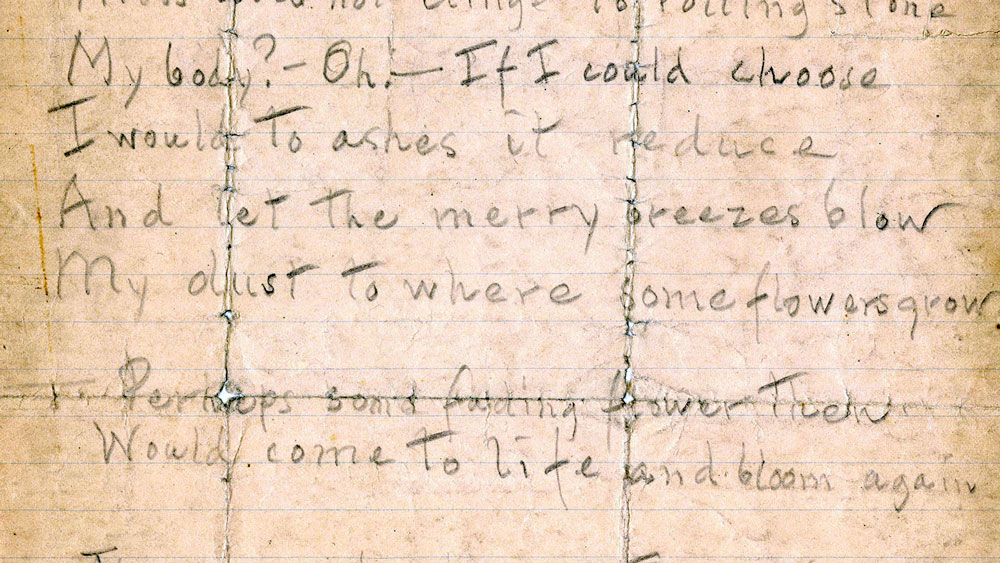 Moss does not clinge to rolling stone
My body? - Oh! - If I could choose
I would to ashes it reduce
And let the merry breezes blow
My dust to where some flowers grow
Perhaps some fading flower then
Would come to life and bloom again